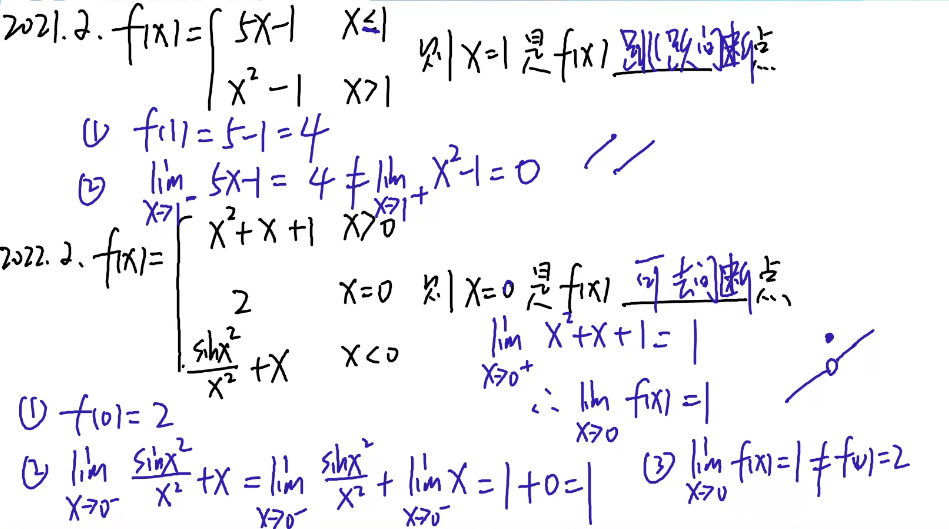 2021.2. f(x)={ 5x-1 x≤1
x²-1 x>1 则x=1是f(x) 跳跃间断点
① f(1)=5-1=4
② lim x→1⁻ 5x-1=4≠lim x→1⁺ x²-1=0
2022.2. f(x)={ x²+x+1 x>0
2 x=0 则x=0是f(x) 可去间断点
sinx²/x²+x x<0
lim x→0⁺ x²+x+1=1
∴ lim x→0 f(x)=1
① f(0)=2
② lim x→0⁻ sinx²/x²+x=lim x→0⁻ sinx²/x²+lim x→0⁻ x=1+0=1
③ lim x→0 f(x)=1≠f(0)=2